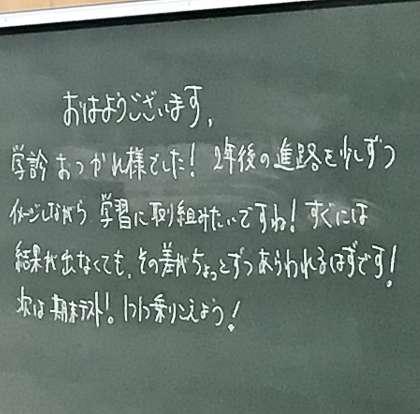 おはようございます。
学診おつかれ様でした！ 2年後の進路を少しずつ
イメージしながら 学習に取り組みたいですね！ すぐには
結果が出なくても、その差がちょっとずつあらわれるはずです！
次は期末テスト！ 1つ1つ乗りこえよう！